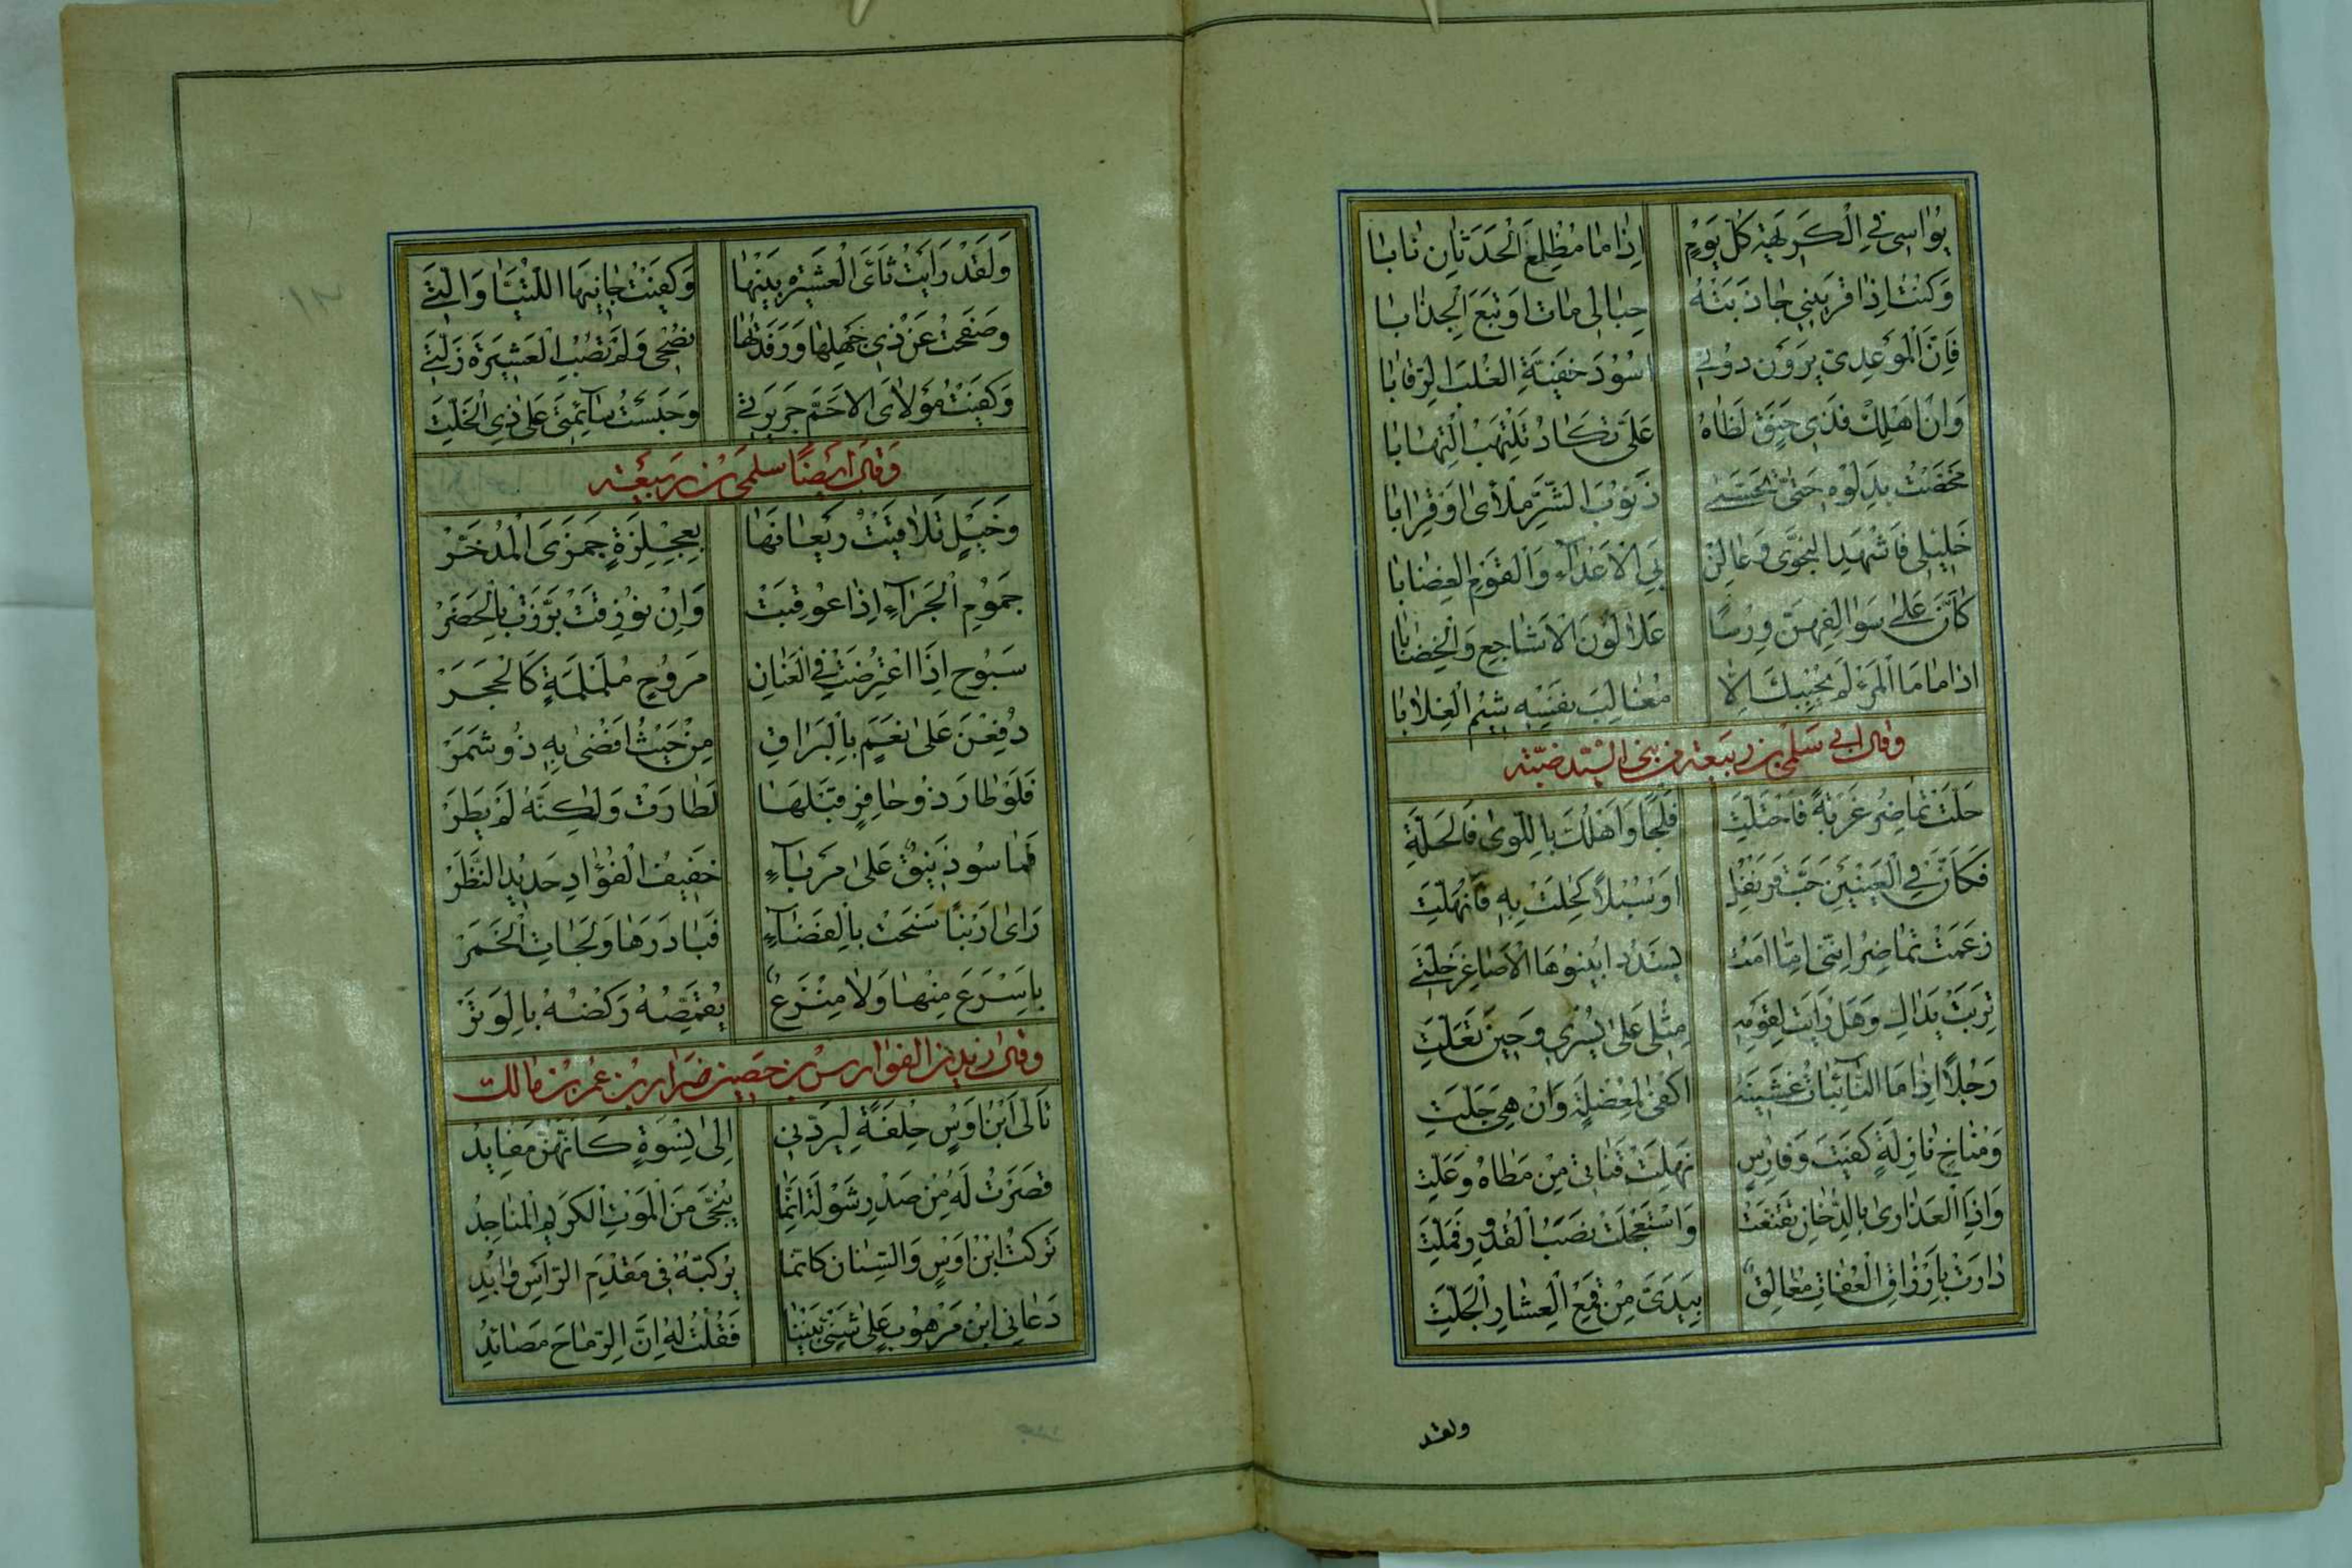 يُوٰاسِى فِى الْكَرِيهَةِ كُلَّ يَوْمٍ اِذٰا مٰا مُظْلِعُ الْحَدَثٰانِ نٰابٰا
وَكُنْتُ اِذٰا قَرِينِى جٰاذَبَتْهُ حِبٰالِى مٰاتَ اَوْ تَبِعَ الْجِذٰابٰا
فَاِنَّ الْمُوعِدِىَّ يَرَوْنَ دُونِى اُسُودَ خَفِيَّةِ الْغُلْبَ الرِّقٰابٰا
وَاِنْ اَهْلِكْ فَذِى حَنَقٍ لَظٰاهُ عَلَىَّ تَكٰادُ تَلْتَهِبُ الْتِهٰابٰا
مَخَضْتُ بِدَلْوِهِ حَتّٰى تَحَسّٰى ذَنُوبَ الشَّرِّ مَلْأٰى اَوْ قِرٰابٰا
خَلِيلَى فَاشْهَدِ النَّجْوٰى وَعٰالِنْ بِىَ الْاَعْدٰآءَ وَالْقَوْمَ الْغِضٰابٰا
كَاَنَّ عَلٰى سَوٰالِفِهِنَّ وِرْسًا عَلٰا لَوْنَ الْاَشٰاجِعِ وَالْخِضٰابٰا
اِذٰا مٰا مَا الْمَرْءُ لَمْ يُحْبِبْكَ اِلّٰا مُغٰالِبَ نَفْسِهِ سَئِمَ الْغِلٰابٰا
وقال ابى سلمى بن ربيعة من بنى السّيد ضبّة
حَلَّتْ تُمٰاضِرُ غَرْبَةً فَاحْتَلَّتِ فَلْجًا وَاَهْلُكَ بِاللِّوٰى فَالْحَلَّةِ
فَكَاَنَّ فِى الْعَيْنَيْنِ حَبَّ قَرَنْفُلٍ اَوْ سُنْبُلًا كُحِلَتْ بِهِ فَانْهَلَّتِ
زَعَمَتْ تُمٰاضِرُ اِنَّنِى اِمّٰا اَمُتْ يَسْدُدْ اُبَيْنُوهَا الْاَصٰاغِرُ خَلَّتِى
تَرِبَتْ يَدٰاكِ وَهَلْ رَاَيْتِ لِقَوْمِهِ مِثْلِى عَلٰى يُسْرِى وَحِينَ تَعِلَّتِ
رَجُلًا اِذٰا مَا النّٰآئِبٰاتُ غَشِينَهُ اَكْفٰى لِمُعْضِلَةٍ وَاِنْ هِىَ جَلَّتِ
وَمُنٰاخِ نٰازِلَةٍ كَفَيْتُ وَفٰارِسٍ نَهِلَتْ قَنٰاتِى مِنْ مَطٰاهُ وَعَلَّتِ
وَاِذَا الْعَذٰارٰى بِالدُّخٰانِ تَقَنَّعَتْ وَاسْتَعْجَلَتْ نَصْبَ الْقُدُورِ فَمَلَّتِ
دٰارَتْ بِاَرْزٰاقِ الْعُفٰاتِ مَغٰالِقٌ بِيَدَىَّ مِنْ قَمَعِ الْعِشٰارِ الْجَلَّتِ
ولقد
وَلَقَدْ رَاَيْتُ ثَاَى الْعَشِيرَةِ بَيْنَهٰا وَكَفَيْتُ جٰانِيَهَا اللَّتَيّٰا وَالَّتِى
وَصَفَحْتُ عَنْ ذِى جَهْلِهٰا وَرَفَدْتُهٰا نُصْحِى وَلَمْ تُصِبِ الْعَشِيرَةَ زَلَّتِى
وَكَفَيْتُ مَوْلٰاىَ الْاَحَمَّ جَرِيرَتِى وَحَبَسْتُ سٰآئِمَتِى عَلٰى ذِى الْخَلَّتِ
وَقٰالَ اَيْضًا سلمى بن ربيعة
وَخَيْلٍ تَلٰافَيْتُ رَيْعٰانَهٰا بِعِجْلِزَةٍ جَمَزَى الْمُدَّخَرْ
جَمُومِ الْجَرٰآءِ اِذٰا عُوقِبَتْ وَاِنْ نُوزِقَتْ بَرَّزَتْ بِالْحَضَرْ
سَبُوحٍ اِذَا اعْتَرَضَتْ فِى الْعَنٰانِ مَرُوحٍ مُلَمْلَمَةٍ كَالْحَجَرْ
دُفِعْنَ عَلٰى نَعَمٍ بِالْبَرٰاقِ مِنْ حَيْثُ اَفْضٰى بِهِ ذُو شَمَرْ
فَلَوْ طٰارَ ذُو حٰافِرٍ قَبْلَهٰا لَطٰارَتْ وَلٰكِنَّهُ لَمْ يَطِرْ
فَمٰا سُوذَنِيقٌ عَلٰى مَرْبٰآءٍ خَفِيفُ الْفُؤٰادِ حَدِيدُ النَّظَرْ
رَاٰى اَرْنَبًا سَنَحَتْ بِالْفَضٰآءِ فَبٰادَرَهٰا وَلَجٰاتِ الْخَمَرْ
بِاَسْرَعَ مِنْهٰا وَلٰا مِنْزَعٌ يُقَمِّصُهُ رَكْضُهُ بِالْوَتَرْ
وقال زيد بن الفوارس بن حصين بن ضرار بن عمر بن مالك
تَاَلَّى ابْنُ اَوْسٍ حِلْفَةً لِيَرُدَّنِى اِلٰى نِسْوَةٍ كَاَنَّهُنَّ مَفٰايِدُ
قَصَرْتُ لَهُ مِنْ صَدْرِ شَوْلَةَ اِنَّمٰا يُنَجِّى مِنَ الْمَوْتِ الْكَرِيمُ الْمُنٰاجِدُ
تَرَكْتُ ابْنَ اَوْسٍ وَالسِّنٰانُ كَاَنَّمٰا يُرَكِّبُهُ فِى مَقْدَمِ الرَّاْسِ وٰابِدُ
دَعٰانِى ابْنُ مَرْهُوبٍ عَلٰى شَنْءِ بَيْنِنٰا فَقُلْتُ لَهُ اِنَّ الرِّمٰاحَ مَصٰائِدُ